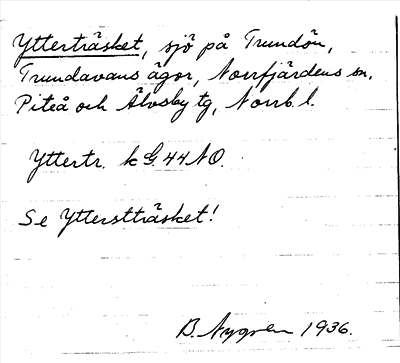 Ytterträsket, sjö på Trundön,
Trundavans ägor, Norrfjärdens sn,
Piteå och Älvsby tg, Norrb. l.
Yttertr. k G. 44 N O.
Se Ytterstträsket!
B. Nygren 1936.